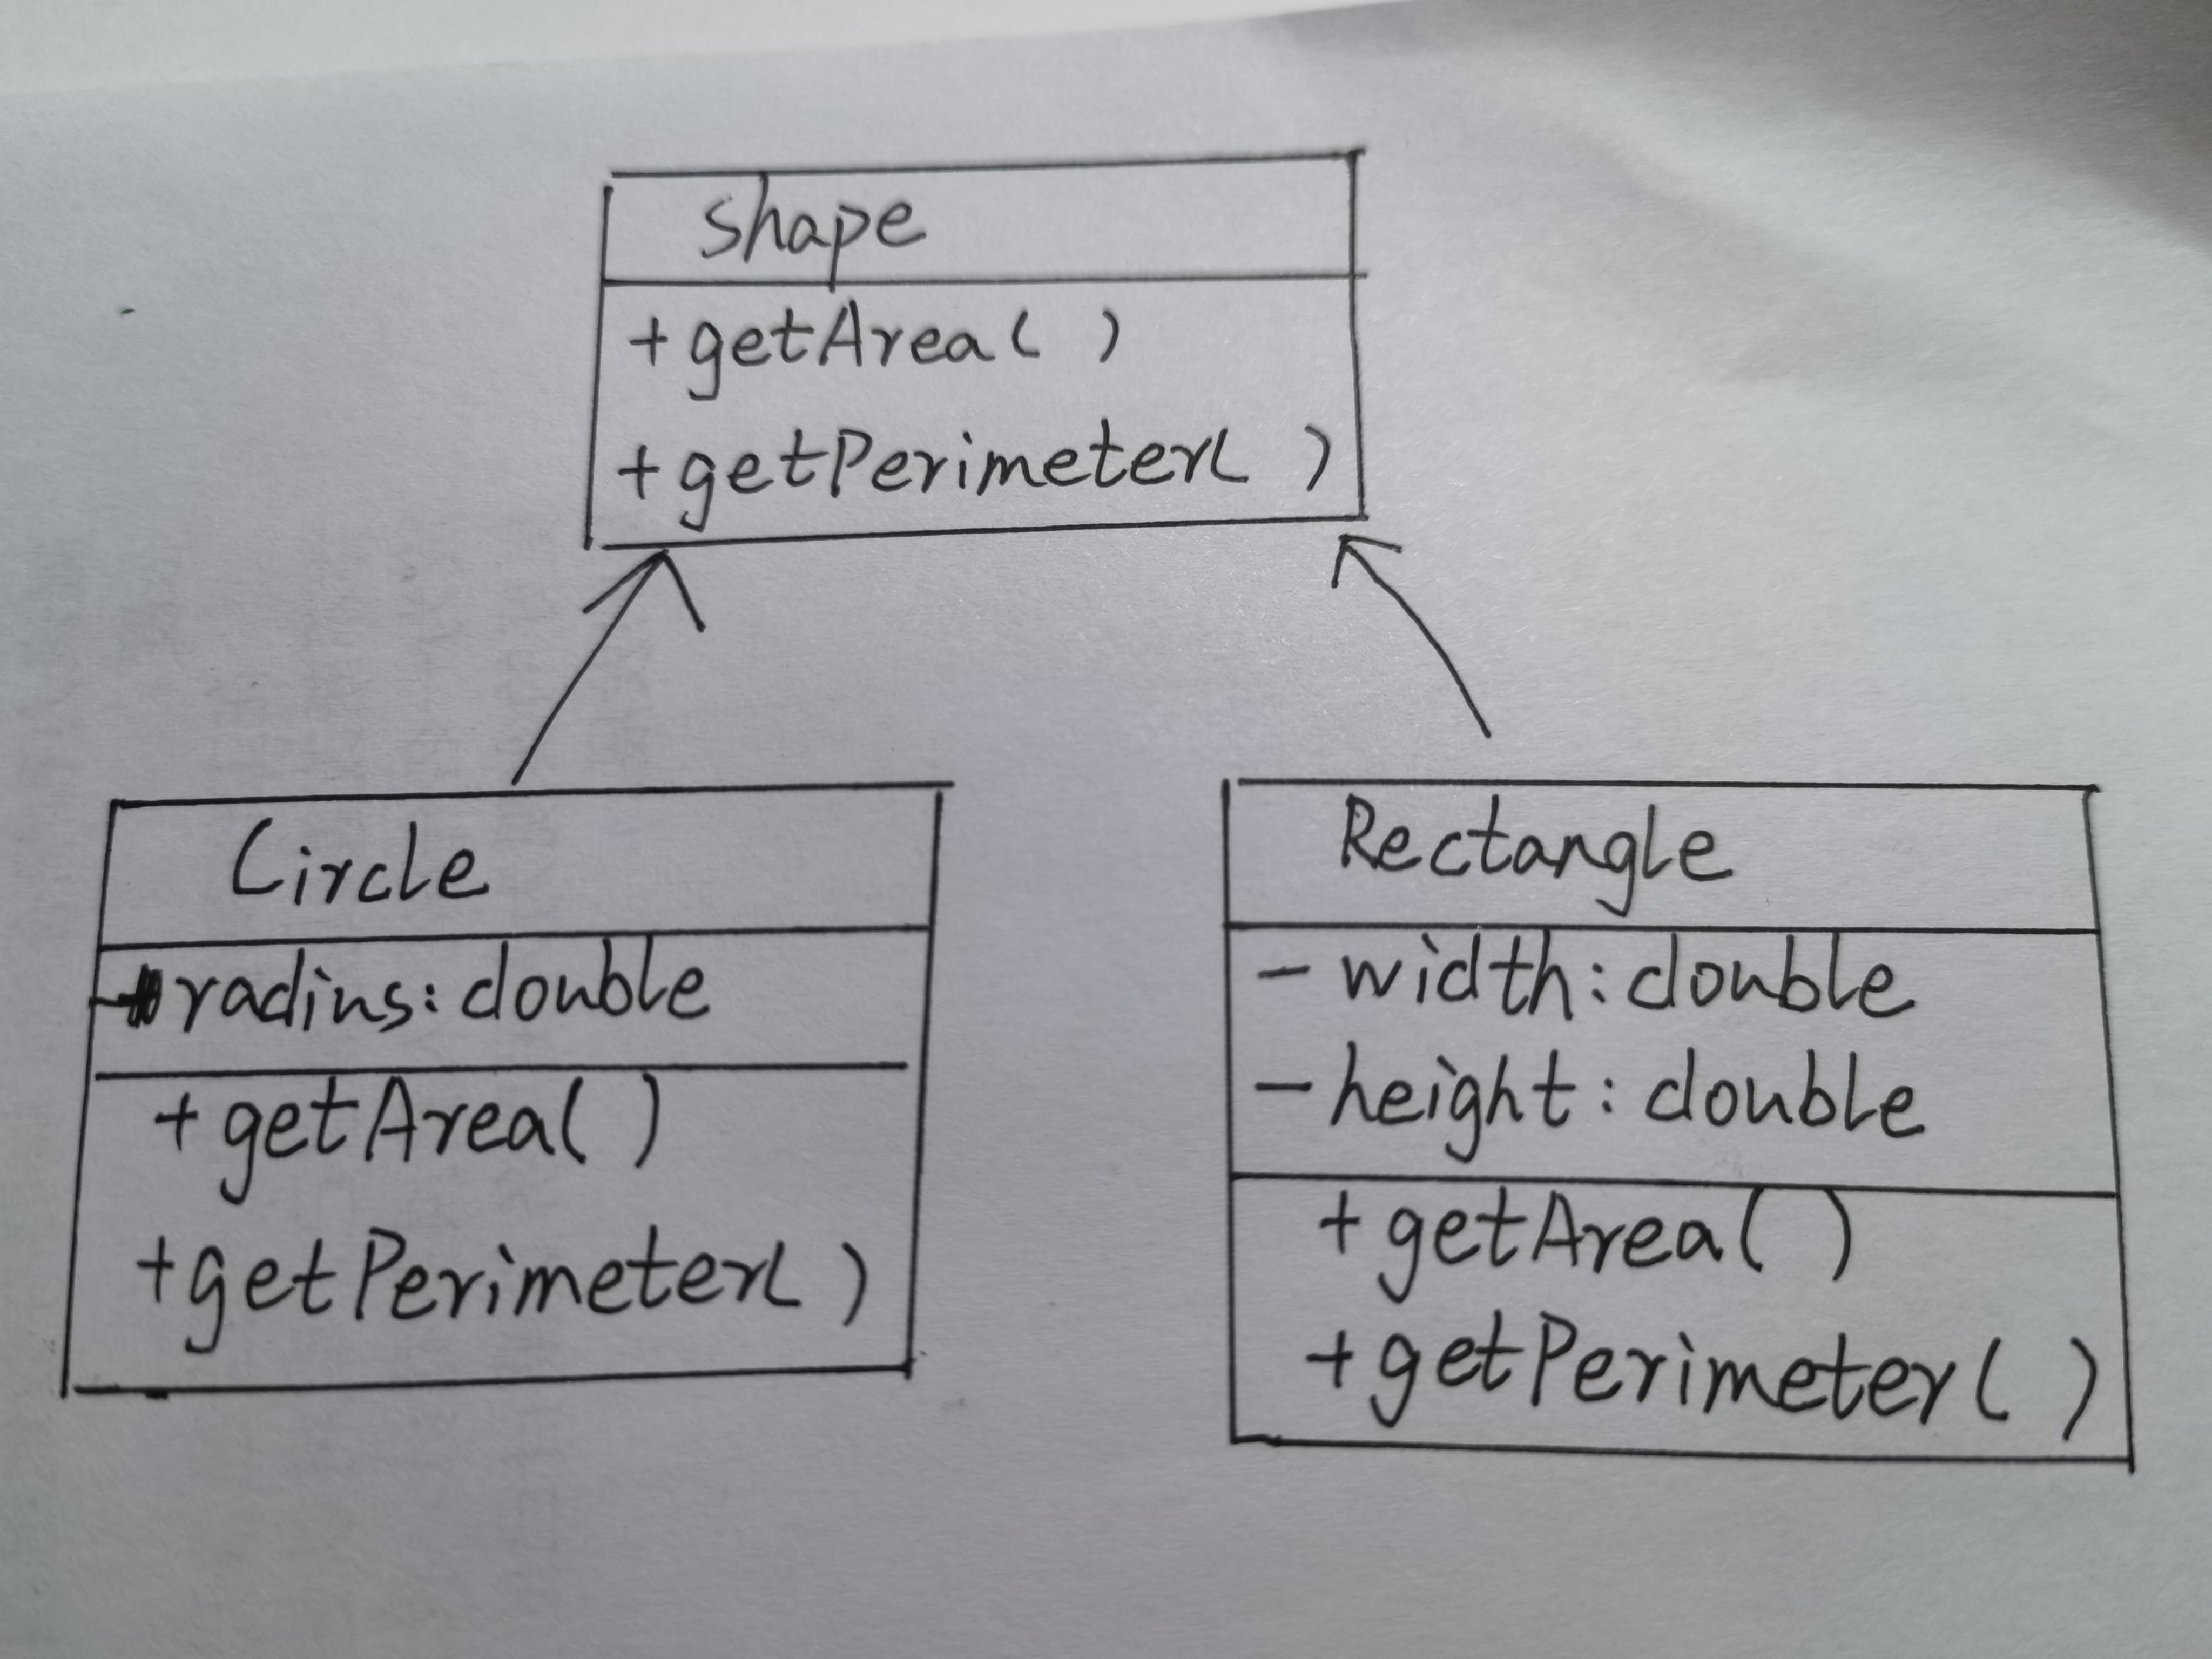 Shape
+getArea( )
+getPerimeter( )
Circle
-radius:double
+getArea( )
+getPerimeter( )
Rectangle
-width:double
-height:double
+getArea( )
+getPerimeter( )